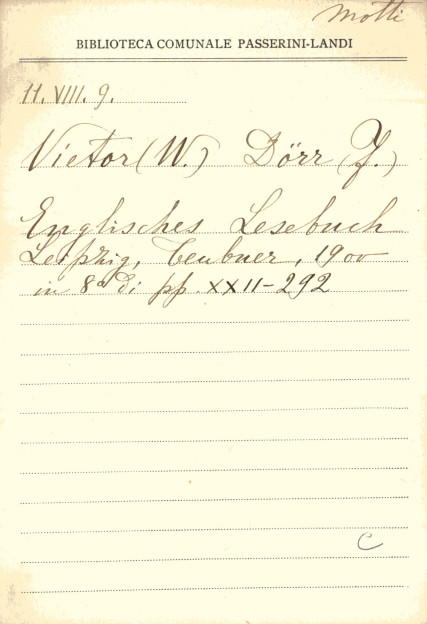 Motti
BIBLIOTECA COMUNALE PASSERINI-LANDI
11. VIII. 9.
Vietor (W.) Dörr (F.)
Englisches Lesebuch
Leipzig, Teubner, 1900
in 8° di pp. XXII-292
C